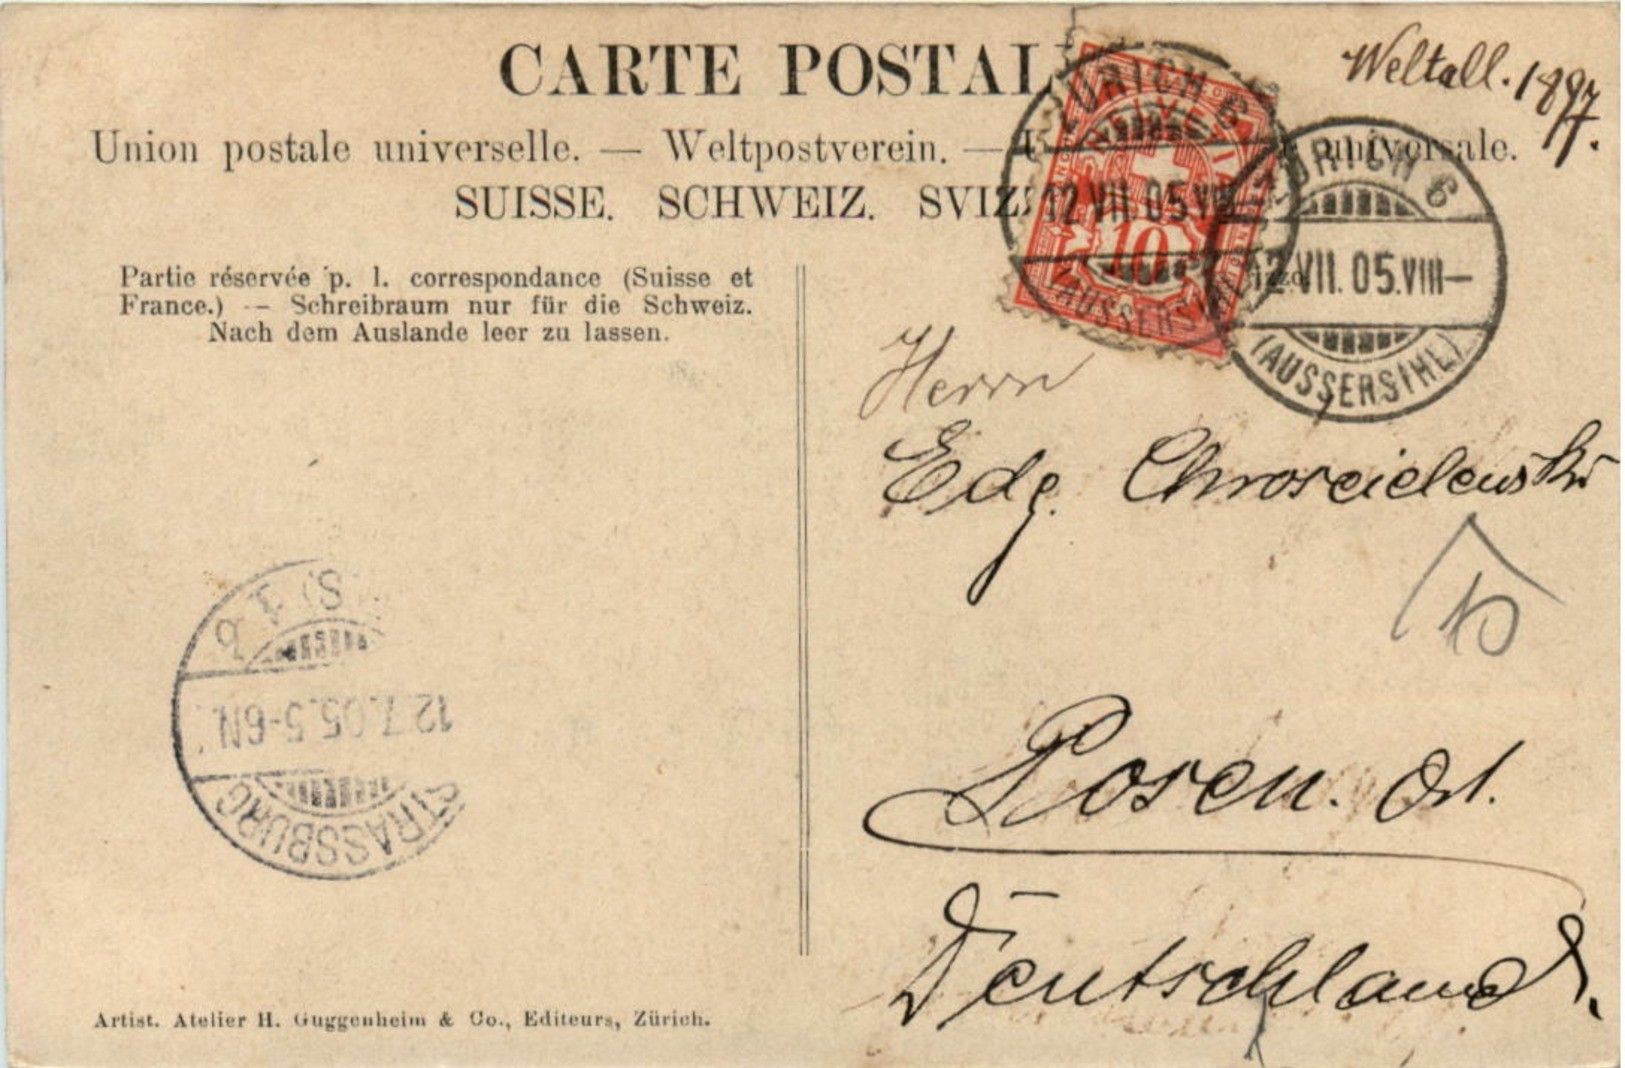 CARTE POSTAL
Weltall. 1897.
Union postale universelle. — Weltpostverein. — universale.
SUISSE. SCHWEIZ. SVIZ
ZÜRICH 6
12 VII. 05 VIII
(AUSSERSIHL)
10
ZÜRICH 6
12 VII. 05. VIII—
(AUSSERSIHL)
Partie réservée p. l. correspondance (Suisse et
France.) — Schreibraum nur für die Schweiz.
Nach dem Auslande leer zu lassen.
Herrn
Edg. Chroscielewski
Posen. O1.
Deutschland.
STRASSBURG
12.7.05. 5-6N.
Artist. Atelier H. Guggenheim & Co., Editeurs, Zürich.